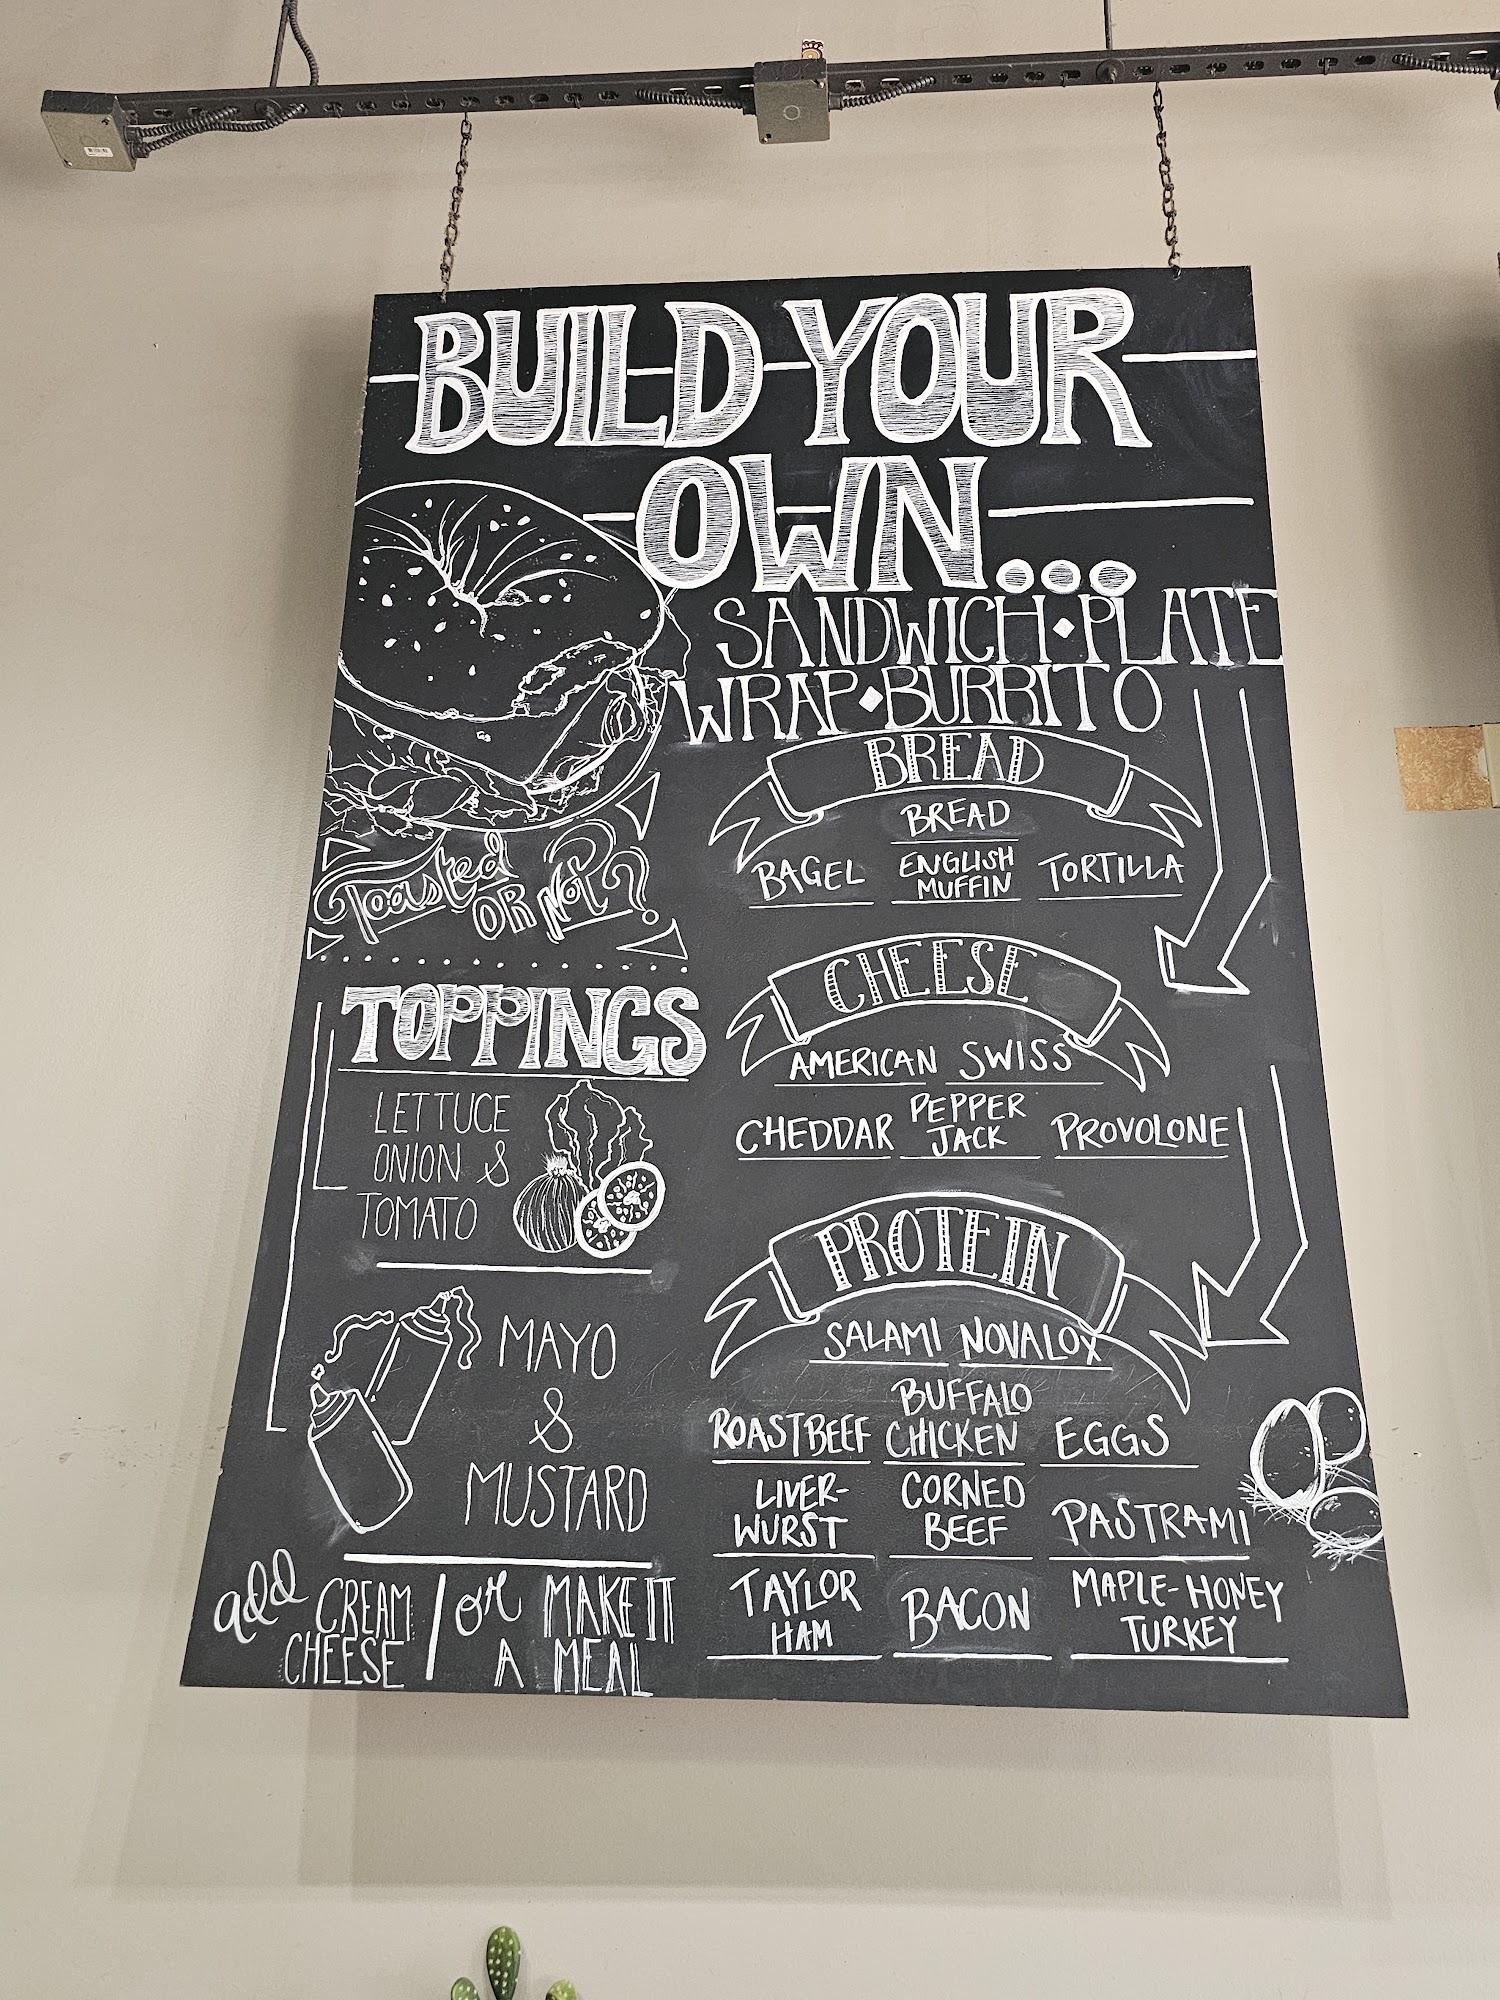 BUILD YOUR
OWN...
SANDWICH◆PLATE
WRAP◆BURRITO
BREAD
BREAD
BAGEL
ENGLISH
MUFFIN
TORTILLA
CHEESE
AMERICAN SWISS
CHEDDAR
PEPPER
JACK
PROVOLONE
PROTEIN
SALAMI NOVALOX
ROASTBEEF
BUFFALO
CHICKEN
EGGS
LIVER-
WURST
CORNED
BEEF
PASTRAMI
TAYLOR
HAM
BACON
MAPLE-HONEY
TURKEY
Toasted
OR NOT?
TOPPINGS
LETTUCE
ONION &
TOMATO
MAYO
&
MUSTARD
add CREAM
CHEESE
or MAKE IT
A MEAL